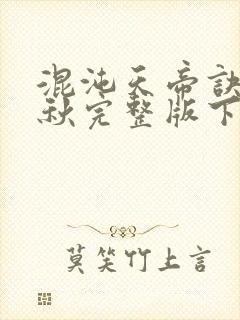 混沌天帝訣
秋完整版下
莫笑竹上言